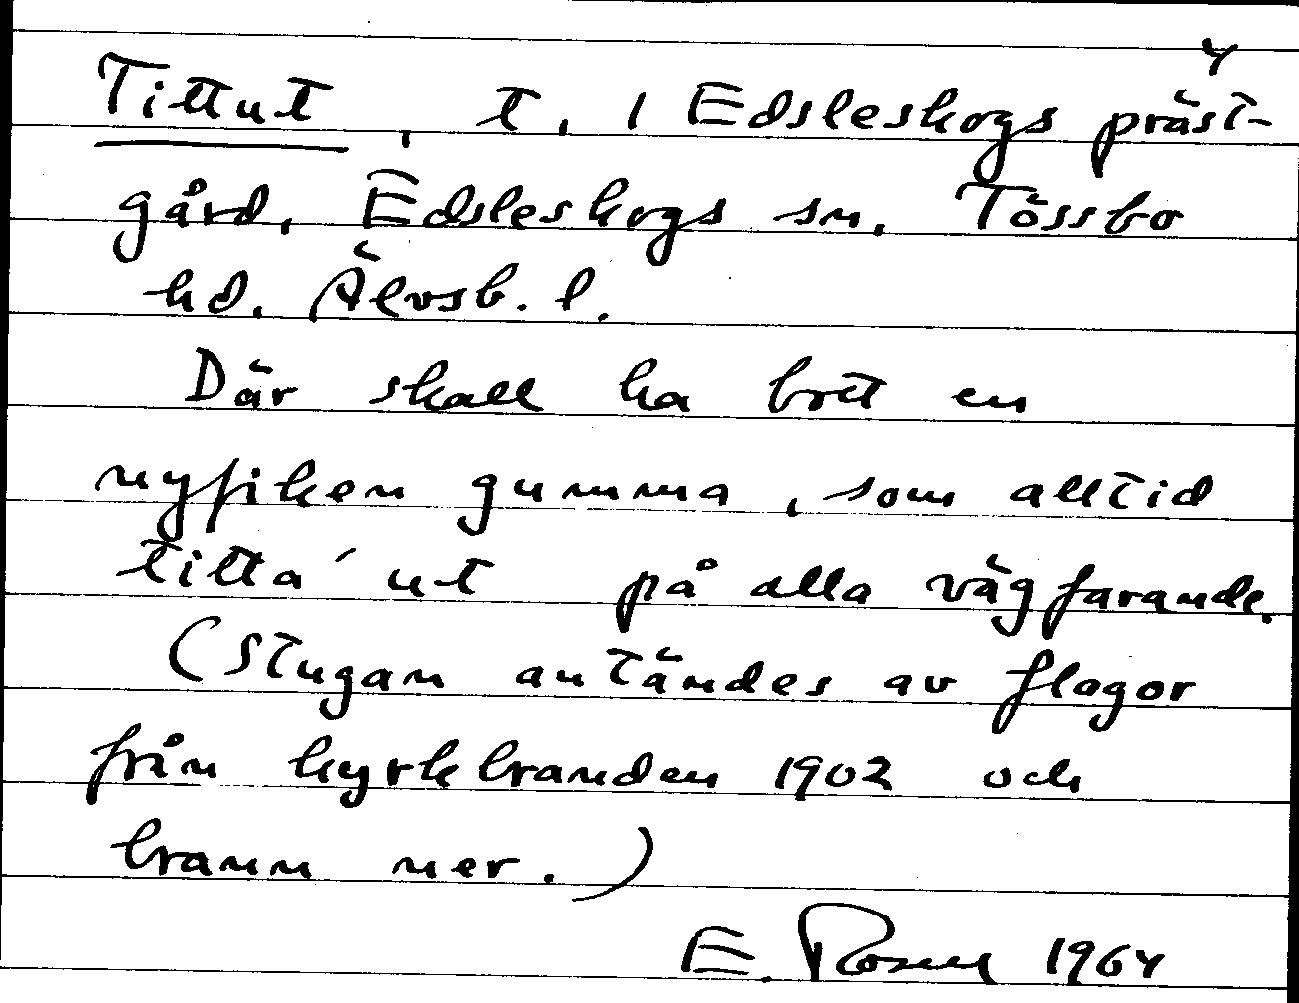 4
Tittut, t. i Edsleskogs präst-
gård, Edsleskogs sn. Tössbo
hd. Älvsb. l.
Där skall ha bott en
nyfiken gumma, som alltid
titta' ut på alla vägfarande.
(Stugan antändes av flagor
från kyrkbranden 1902 och
brann ner.)
E. Rosell 1964